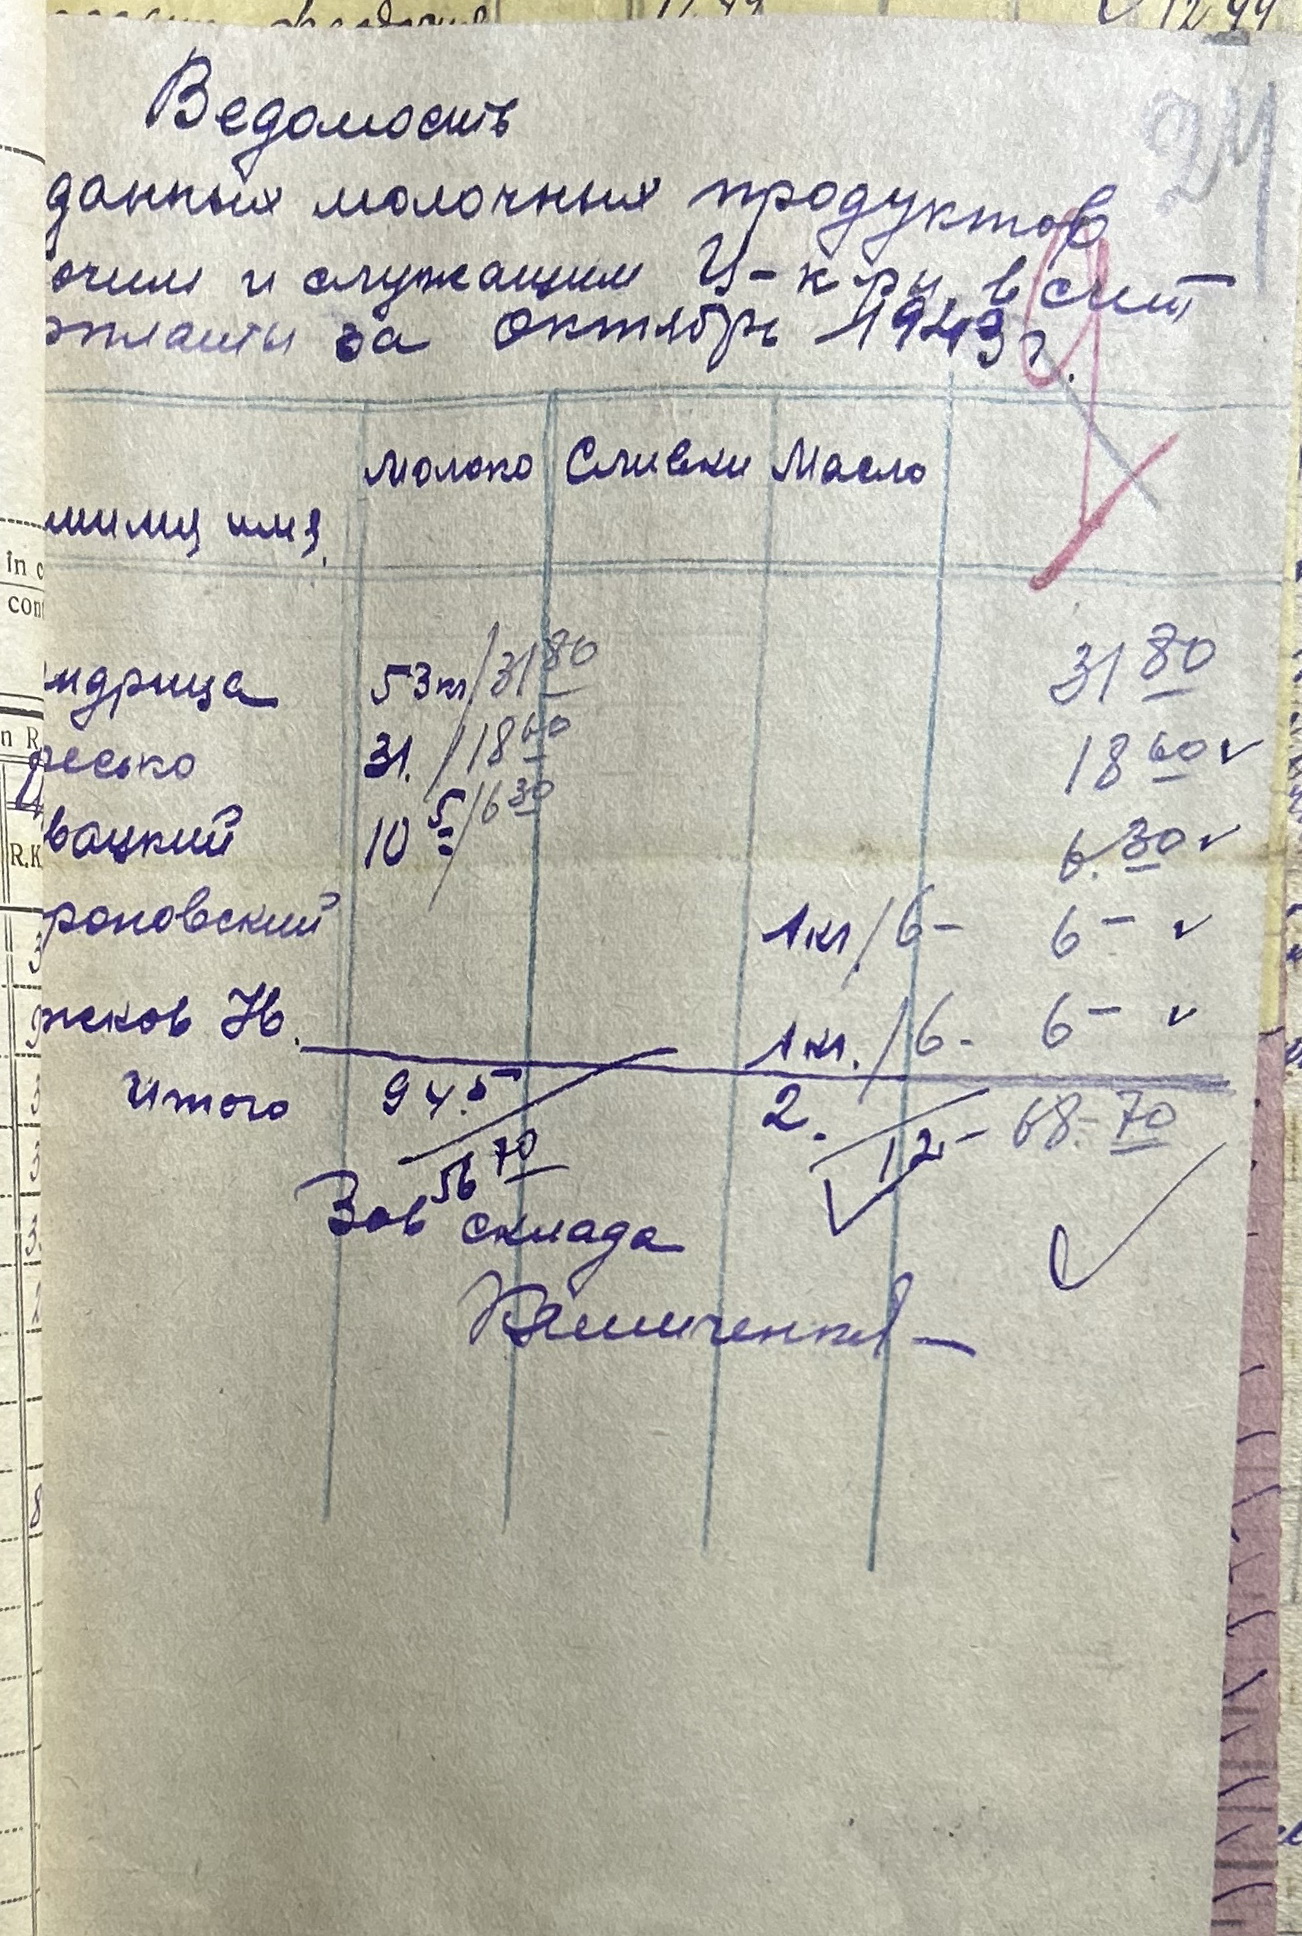 24
Ведомость
данных молочных продуктов
очим и служащим Ц-к-ры в счет
рплаты за Октябрь 1943 г.
Молоко Сливки Масло
милия имя,
ндрица 53кг/31 80 31 80
ресько 31. /18 60 18 60
вацкий 10 5/6 30 6. 30
роповский 1кг/6- 6-
жков Ив. 1кг./6- 6-
Итого 94.5 2. 68.-70
56 70 12-
Зав склада
in c
con
n R
R.K